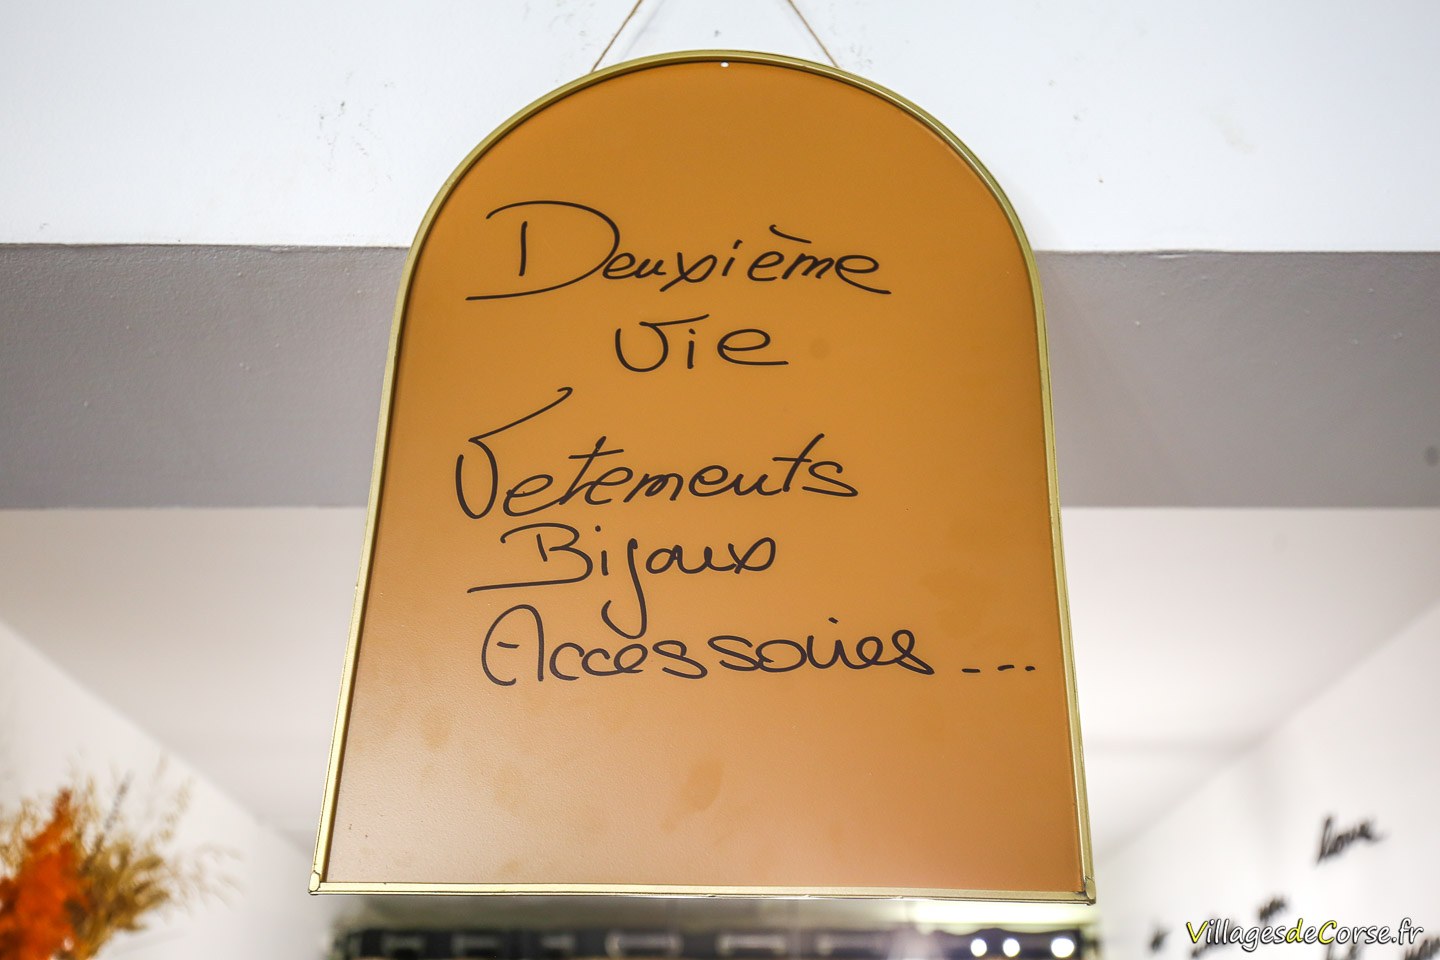 Deuxième
vie
Vetements
Bijoux
Accessoires ...
love
VillagesdeCorse.fr